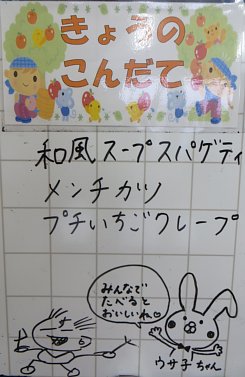 きょうの
こんだて
和風スープスパゲティ
メンチカツ
プチいちごクレープ
みんなで
たべると
おいしいね♡
ウサ子ちゃん